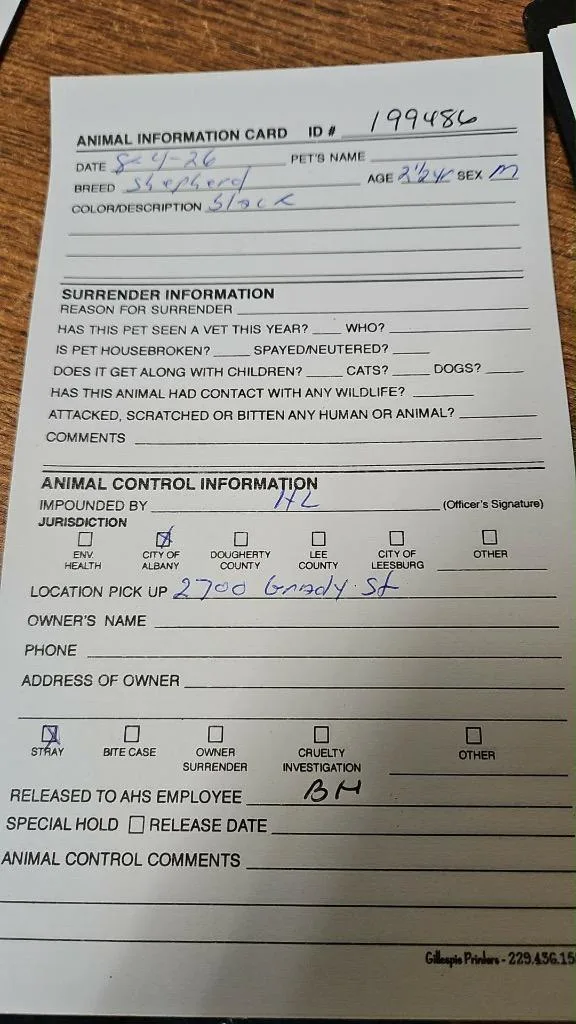 ANIMAL INFORMATION CARD ID # 199486
DATE 8-4-26 PET'S NAME
BREED Shepherd AGE 2 1/2 yr SEX M
COLOR/DESCRIPTION black
SURRENDER INFORMATION
REASON FOR SURRENDER
HAS THIS PET SEEN A VET THIS YEAR? WHO?
IS PET HOUSEBROKEN? SPAYED/NEUTERED?
DOES IT GET ALONG WITH CHILDREN? CATS? DOGS?
HAS THIS ANIMAL HAD CONTACT WITH ANY WILDLIFE?
ATTACKED, SCRATCHED OR BITTEN ANY HUMAN OR ANIMAL?
COMMENTS
ANIMAL CONTROL INFORMATION
IMPOUNDED BY HL (Officer's Signature)
JURISDICTION
ENV. HEALTH CITY OF ALBANY DOUGHERTY COUNTY LEE COUNTY CITY OF LEESBURG OTHER
LOCATION PICK UP 2700 Grady St
OWNER'S NAME
PHONE
ADDRESS OF OWNER
STRAY BITE CASE OWNER SURRENDER CRUELTY INVESTIGATION OTHER
RELEASED TO AHS EMPLOYEE BH
SPECIAL HOLD RELEASE DATE
ANIMAL CONTROL COMMENTS
Gillespie Printers - 229.436.15